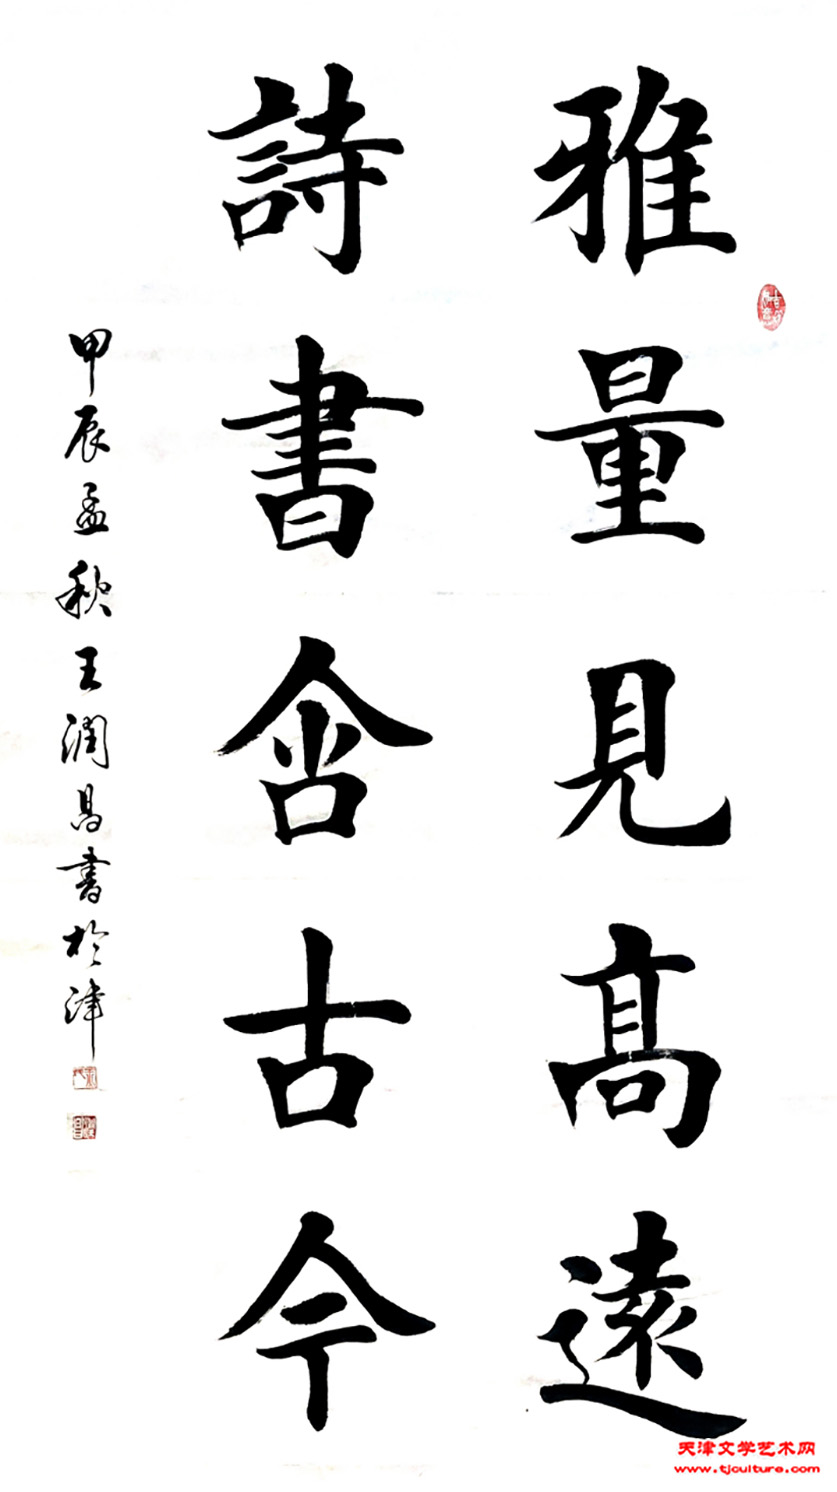 雅量見高遠
詩書含古今
甲辰孟秋王潤昌書於津
天津文学艺术网
www.tjculture.com